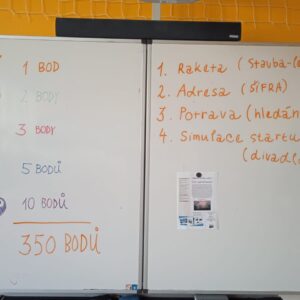 1 BOD
2 BODY
3 BODY
5 BODŮ
10 BODŮ
350 BODŮ
1. Raketa (Stavba-
2. Adresa (ŠIFRA)
3. Potrava (hledán
4. Simulace startu
(divadl